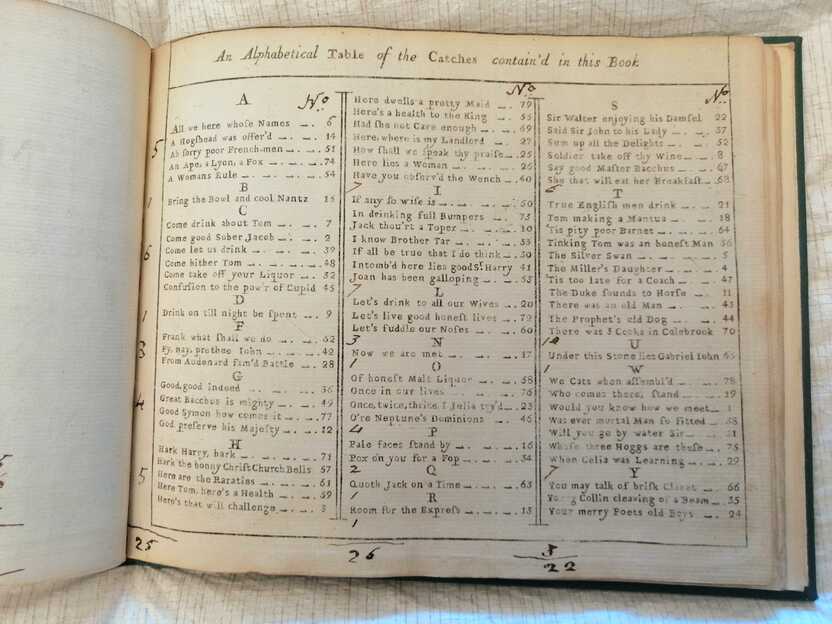 An Alphabetical Table of the Catches contain'd in this Book
A No
All we here whoſe Names 6
A Hogſhead was offer'd 14
Ah ſorry poor French-men 51
An Ape, a Lyon, a Fox 74
A Womans Rule 54
5
B
Bring the Bowl and cool Nantz 15
1
C
Come drink about Tom 7
Come good Sober Jacob 2
Come let us drink 39
Come hither Tom 48
Come take off your Liquor 32
Confuſion to the pow'r of Cupid 45
6
D
Drink on till night be ſpent 9
1
F
Frank what ſhall we do 62
Fy, nay, prethee Iohn 42
From Audenard fam'd Battle 28
3
G
Good, good indeed 36
Great Bacchus is mighty 49
Good Symon how comes it 77
God preſerve his Majeſty 12
4
H
Hark Harry, hark 71
Hark the bonny Chriſt Church Bells 57
Here are the Raraties 61
Here Tom, here's a Health 59
Here's that will challenge 3
5
25
No
Here dwells a pretty Maid 79
Here's a health to the King 55
Had ſhe not Care enough 69
Here, where is my Landlord 27
How ſhall we ſpeak thy praiſe 25
Here lies a Woman 26
Have you obſerv'd the Wench 60
7
I
If any ſo wiſe is 50
In drinking full Bumpers 73
Jack thou'rt a Toper 10
I know Brother Tar 33
If all be true that I do think 30
Intomb'd here lies good Sr. Harry 41
Joan has been galloping 53
7
L
Let's drink to all our Wives 20
Let's live good honeſt lives 72
Let's fuddle our Noſes 60
3
N
Now we are met 17
1
O
Of honeſt Malt Liquor 58
Once in our lives 76
Once, twice, thrice I Julia try'd 23
O're Neptune's Dominions 46
4
P
Pale faces ſtand by 16
Pox on you for a Fop 34
2
Q
Quoth Jack on a Time 63
1
R
Room for the Expreſs 13
1
26
S No
Sir Walter enjoying his Damſel 22
Said Sir John to his Lady 37
Sum up all the Delights 52
Soldier take off thy Wine 8
Say good Maſter Bacchus 67
She that will eat her Breakfaſt 68
6
T
True Engliſh men drink 21
Tom making a Mantua 18
'Tis pity poor Barnet 64
Tinking Tom was an honeſt Man 56
The Silver Swan 5
The Miller's Daughter 4
'Tis too late for a Coach 47
The Duke ſounds to Horſe 11
There was an old Man 43
The Prophet's old Dog 44
There was 3 Cooks in Colebrook 70
U
Under this Stone lies Gabriel Iohn 65
1
W
We Cats when aſſembl'd 78
Who comes there, ſtand 19
Would you know how we meet 1
Was ever mortal Man ſo Fitted 38
Will you go by water Sir 31
Whoſe three Hoggs are theſe 75
When Celia was Learning 29
7
Y
You may talk of briſk Claret 66
Young Collin cleaving of a Beam 35
Your merry Poets old Boys 24
3
22